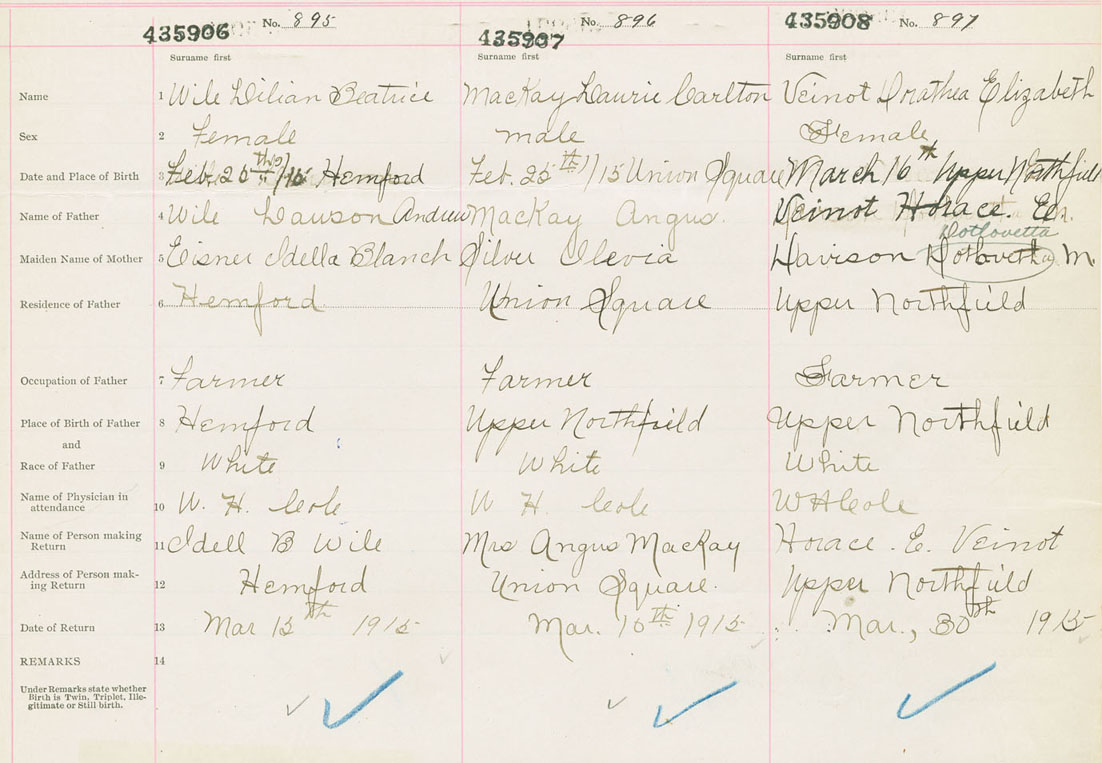 435906 No. 895 435907 No. 896 435908 No. 897
Surname first Surname first Surname first
Name 1 Wile Lilian Beatrice MacKay Laurie Carlton Veinot Dorathea Elizabeth
Sex 2 Female male Female
Date and Place of Birth 3 Feb. 25th /15 Hemford Feb. 25th /15 Union Square March 16th Upper Northfield
Name of Father 4 Wile Dawson Andrew MacKay Angus. Veinot Horace. Ed.
Dotlovetta
Maiden Name of Mother 5 Eisner Idella Blanch Silver Olevia M.
Residence of Father 6 Hemford Union Square Upper Northfield
Occupation of Father 7 Farmer Farmer Farmer
Place of Birth of Father 8 Hemford Upper Northfield Upper Northfield
and
Race of Father 9 White White White
Name of Physician in attendance 10 W. H. Cole W H Cole W H Cole
Name of Person making Return 11 Idell B Wile Mrs Angus MacKay Horace. E. Veinot
Address of Person mak-ing Return 12 Hemford Union Square. Upper Northfield
Date of Return 13 Mar 15th 1915 Mar. 10th 1915 Mar., 30th 1915
REMARKS 14
Under Remarks state whether
Birth is Twin, Triplet, Ille-
gitimate or Still birth.